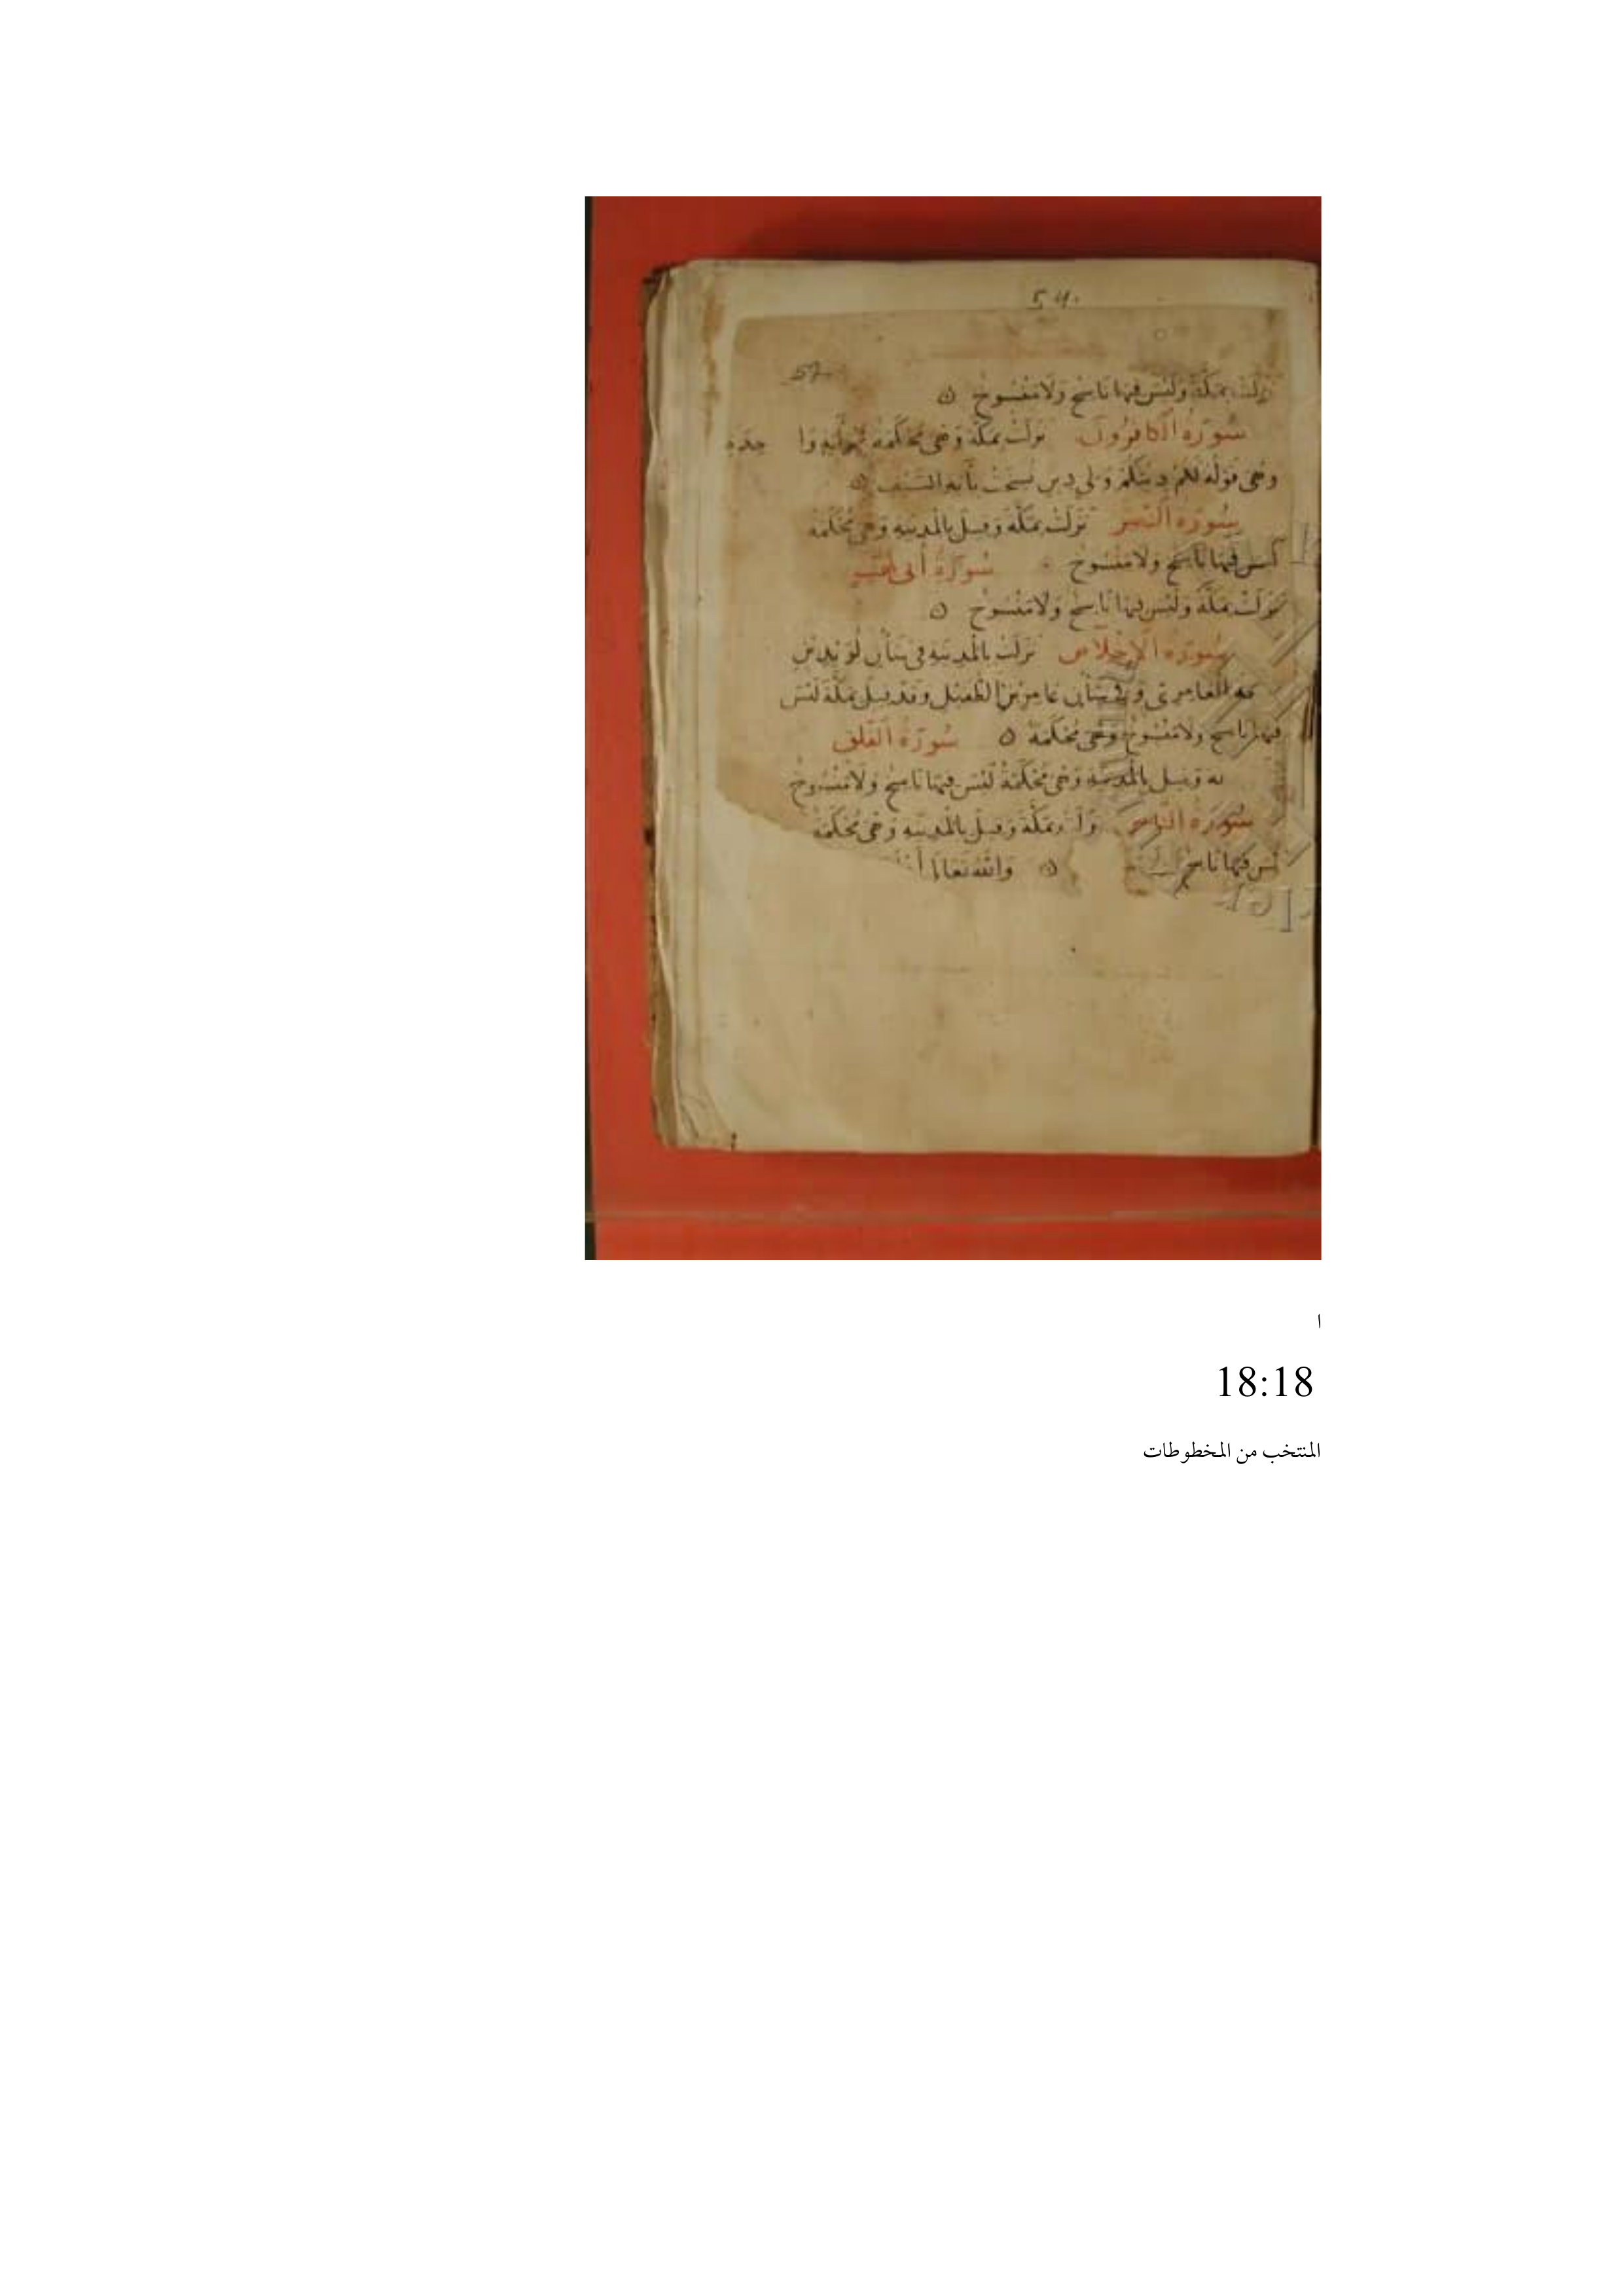 54.
57
نزلت بمكة وليس فيها ناسخ ولا منسوخ
سورة الكافرون نزلت بمكة وهي محكمة وا حده
وهي قوله لكم دينكم ولي دين نسخت بآية السيف
سورة النصر نزلت بمكة وقيل بالمدينة وهي محكمة
ليس فيها ناسخ ولا منسوخ سورة أبي
نزلت بمكة وليس فيها ناسخ ولا منسوخ
سورة الإخلاص نزلت بالمدينة في شأن
العامري وفي شأن عامر بن الطفيل وقد قيل بمكة ليس
فيها ناسخ ولا منسوخ وهي محكمة سورة الفلق
وقيل بالمدينة وهي محكمة ليس فيها ناسخ ولا منسوخ
سورة الناس بمكة وقيل بالمدينة وهي محكمة
ليس فيها ناسخ والله تعالى
ا
18:18
المنتخب من المخطوطات